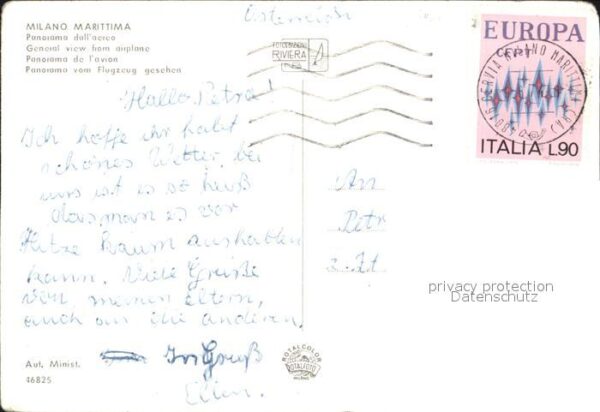 Österreich
MILANO MARITTIMA
Panorama dall'aereo
General view from airplane
Panorama de l'avion
Panorama vom Flugzeug gesehen
RIVIERA
EUROPA
CEPT
ITALIA L.90
Hallo Petra!
Ich hoffe ihr habt
schönes Wetter, bei
uns ist es so heiß
das man es vor
Hitze kaum aushalten
kann. Viele Grüße
von meinen Eltern,
auch an die anderen.
Gruß
Ellen.
An
Petr
z. Zt
privacy protection
Datenschutz
Aut. Minist.
46825
ROTALCOLOR
ROTALFOTO
MILANO